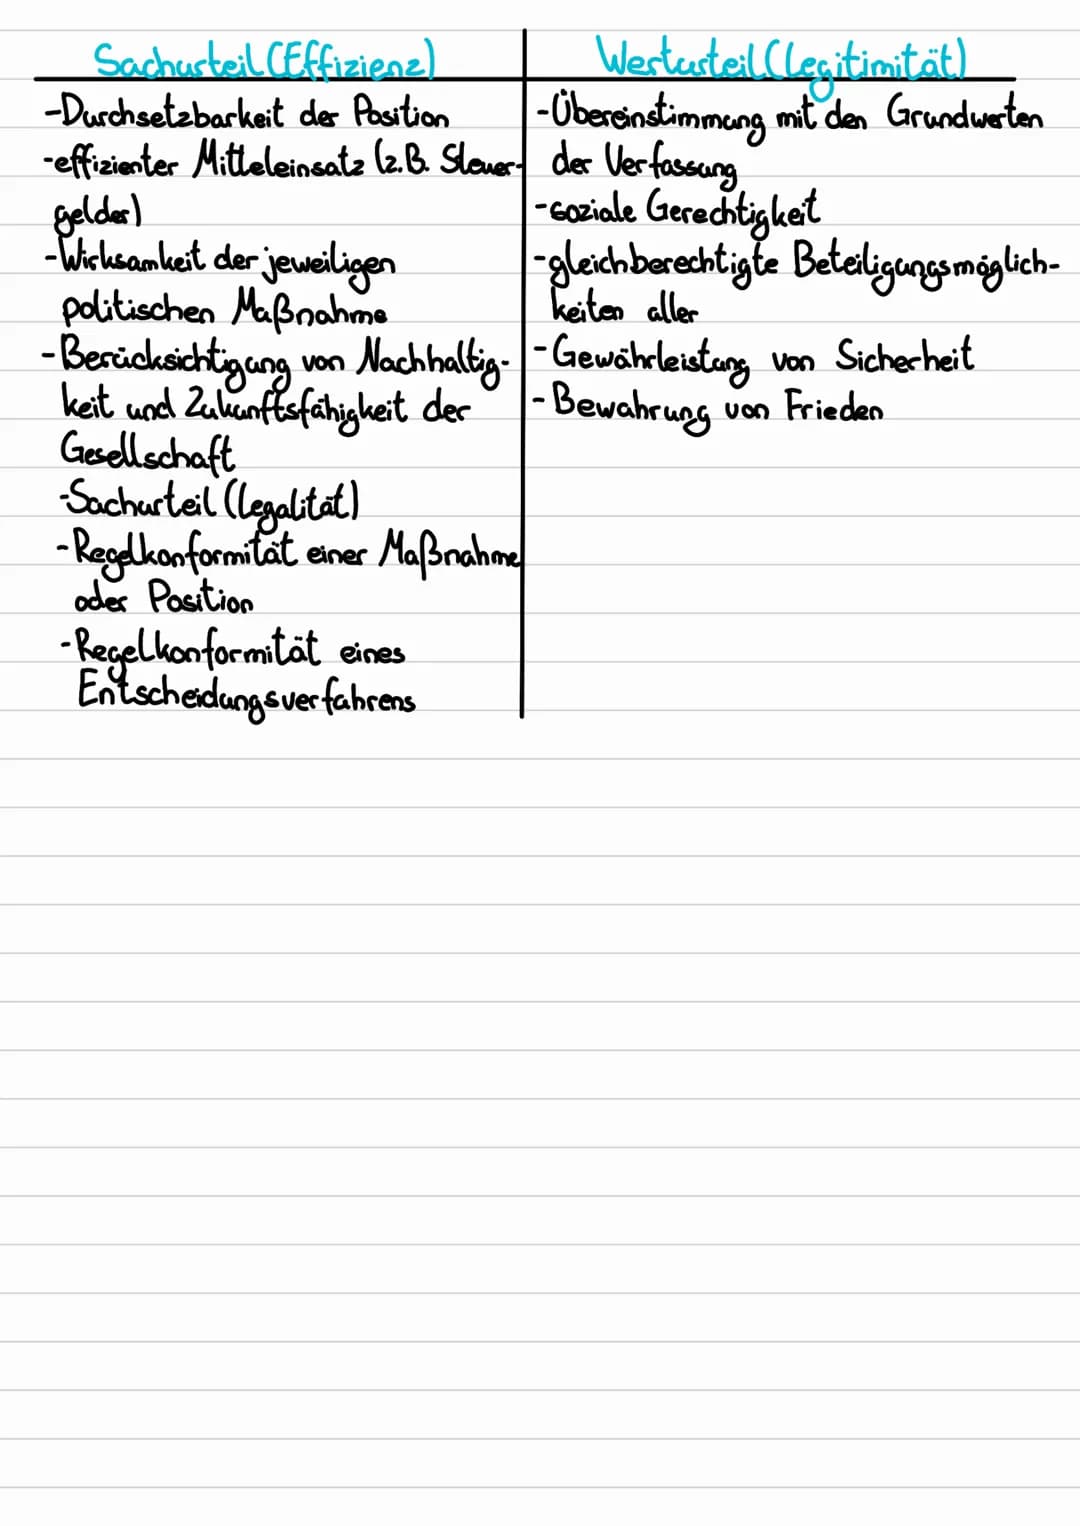 Sachurteil (Effizienz)
-Durchsetzbarkeit der Position
-effizienter Mitteleinsatz (z.B. Steuer-
gelder)
-Wirksamkeit der jeweiligen
politischen Maßnahme
-Berücksichtigung von Nachhaltig-
keit und Zukunftsfähigkeit der
Gesellschaft
-Sachurteil (Legalität)
-Regelkonformität einer Maßnahme
oder Position
-Regelkonformität eines
Entscheidungsverfahrens
Werturteil (Legitimität)
-Übereinstimmung mit den Grundwerten
der Verfassung
-soziale Gerechtigkeit
-gleichberechtigte Beteiligungsmöglich-
keiten aller
-Gewährleistung von Sicherheit
-Bewahrung von Frieden